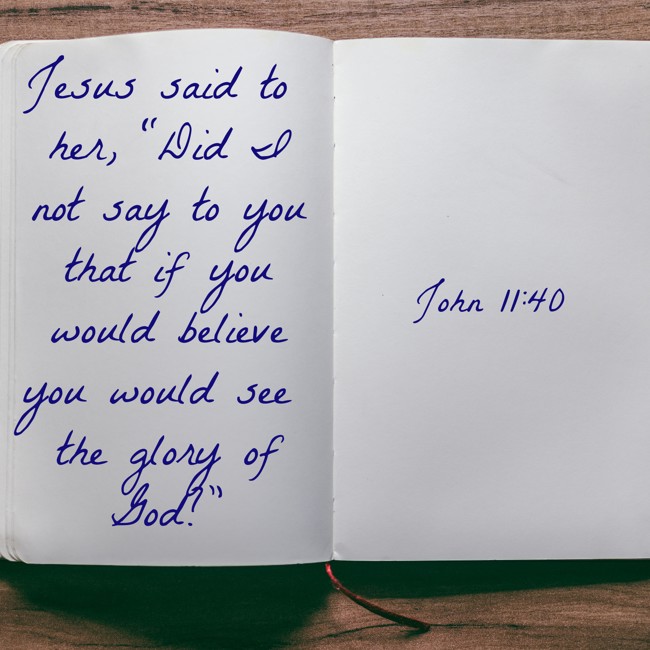 Jesus said to
her, "Did I
not say to you
that if you
would believe
you would see
the glory of
God?"
John 11:40